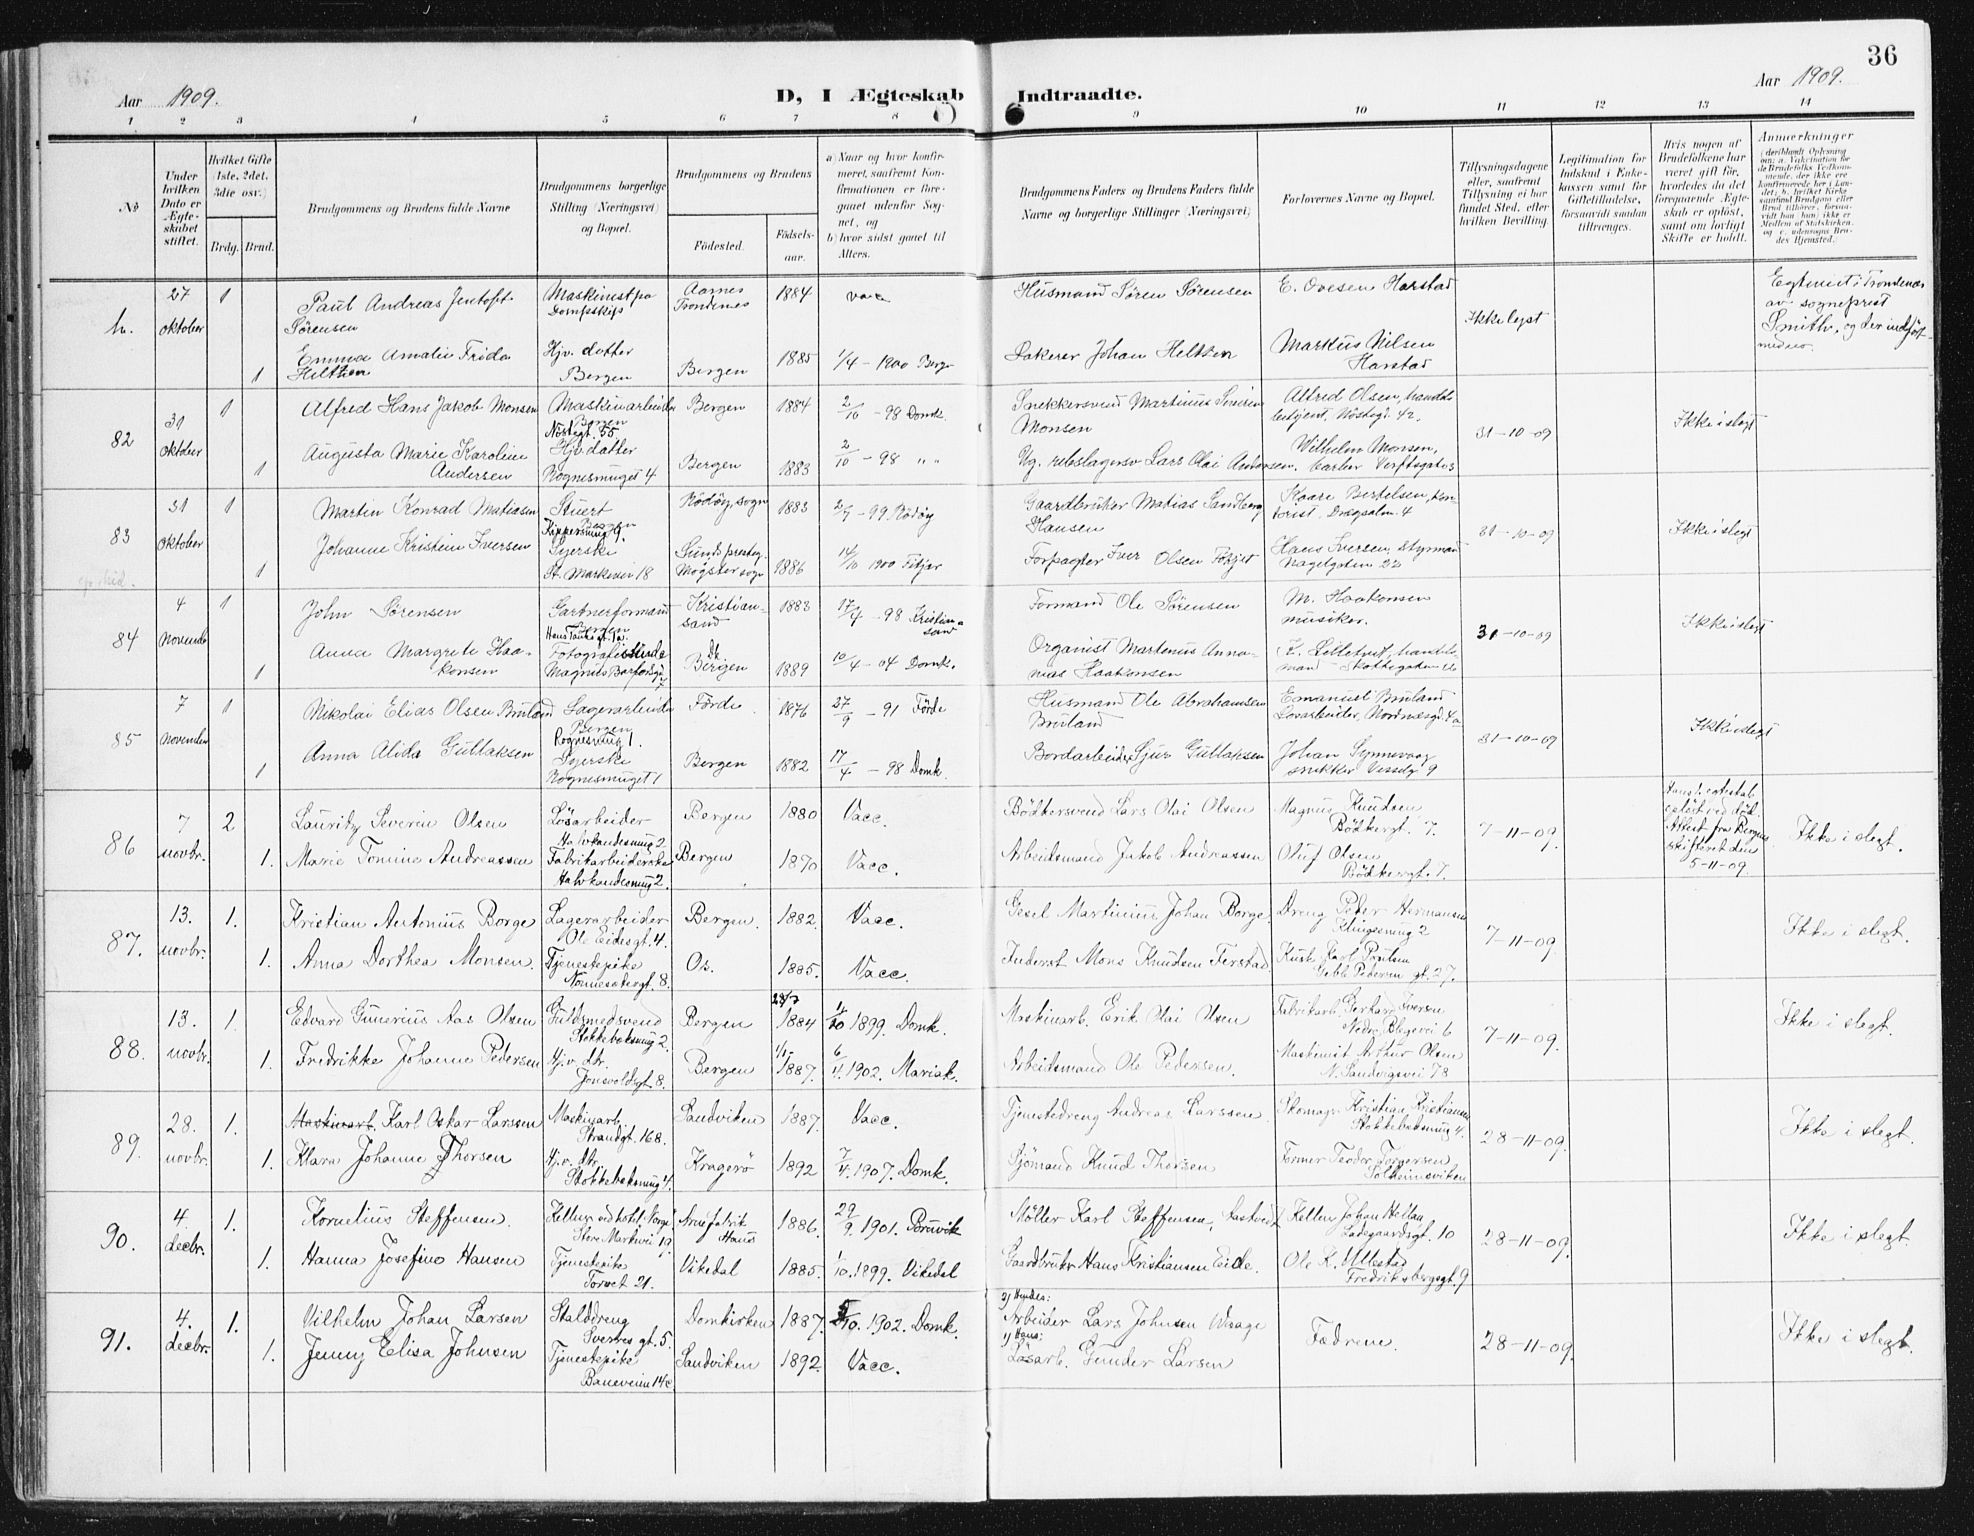 36
Aar 1909.
D, I Ægteskab Indtraadte.
Aar 1909.
1 2 3 4 5 6 7 8 9 10 11 12 13 14
№
Under hvilken Dato er Ægteskabet stiftet.
Hvilket Gifte (1ste, 2det, 3die osv.)
Brdg. Brud.
Brudgommens og Brudens fulde Navne
Brudgommens borgerlige Stilling (Næringsvei) og Bopæl.
Brudgommens og Brudens
Födested.
Födselsaar.
a) Naar og hvor konfirmeret, saafremt Konfirmationen er foregaaet udenfor Sognet, og
b) hvor sidst gaaet til Alters.
Brudgommens Faders og Brudens Faders fulde Navne og borgerlige Stillinger (Næringsvei)
Forlovernes Navne og Bopæl.
Tillysningsdagene eller, saafremt Tillysning ei har fundet Sted, efter hvilken Bevilling.
Legitimation for Indskud i Enkekassen samt for Giftetilladelse, forsaavidt saadan tiltrænges.
Hvis nogen af Brudefolkene har været gift før, hvorledes da det foregaaende Ægteskab er opløst, samt om lovligt Skifte er holdt.
Anmerkninger
h. 27 oktober 1
Paul Andreas Jentoft Sørensen
Maskinist paa Dampskip
Aarnes Trondenes
1884
vacc
Husmand Søren Sørensen
E. Ovesen Harstad
Ikke lyst
Egteviet i Trondenes av sogneprest Smith, og der indført
1
Emma Amalie Frida Hilthen
Hjv. datter Bergen
Bergen
1885
1/4 - 1900 Berge
Johan Heltzen
Markus Nilsen Harstad
82 31 oktober 1
Alfred Hans Jakob Monsen
Maskinarbeider Bergen Nöstegt. 55
Bergen
1884
2/10 - 98 Domk.
Snekkersvend Martinus Monsen
Alfred Olsen, Nöstegd. 42.
31-10-09
Ikke i slegt
1
Augusta Marie Karoline Andersen
Hjv. datter Rognesmuget 4
Bergen
1883
2/10 - 98 " "
Lars Olai Andersen.
Wilhelm Monsen,
83 31 oktober 1
Martin Konrad Matiasen
Stuert Bergen
Rödöy sogn
1883
2/9 - 99 Rödöy
Gaardbruker Matias Sandberg Hansen
Kaare Bertelsen, kontorist,
31-10-09
Ikke i slegt
1
Johanne Kristin Iversen
Syerske St. Markevei 18
1886
14/10 1900 Fitjar
Forpagter Iver Olsen
Hans Iversen, styrmand Nagelgaten 22
84 4 november 1
John Sørensen
Gartnerformand Bergen Hans Tanks gt.
Kristiansand
1883
17/4 - 98 Kristiansand
Formand Ole Sørensen
M. Haakonsen musiker.
31-10-09
Ikke i slegt
1
Anna Margrete Haakonsen
Magnus Barfodsgt. 7
Bergen
1889
10/4 - 04 Domk.
Organist Martenus Annanias Haakonsen
K. Lilletvet,
85 7 november 1
Nikolai Elias Olsen Bruland
Lagerarbeider Bergen Rognesmug 1.
Förde
1876
27/9 - 91 Förde
Husmand Ole Abrahamsen Bruland
Emanuel Bruland
31-10-09
Ikke i slegt
1
Anna Alida Gullaksen
Syerske Rognesmuget 1
Bergen
1882
17/4 - 98 Domk.
Bordarbeider Sjur Gullaksen
Johan Synnevaag snekker Vesselg 9
86 7 novbr. 2
Lauritz Severin Olsen
Løsarbeider Halvkandesmug 2
Bergen
1880
Vacc.
Bödkersvend Lars Olai Olsen
Magnus Knudsen Bödkergt. 7.
7-11-09.
Hans 1. egteskab opløst ved død Attest fra Bergens skifteret den 5-11-09.
Ikke i slegt.
1.
Marie Tomine Andreassen
Fabrikarbeiderske Halvkandesmug 2.
Bergen
1870
Vacc.
Arbeidsmand Jakob Andreassen
Oluf Olsen Bödkergt. 7.
87. 13. novbr. 1.
Kristian Antonius Borge
Lagerarbeider Ole Eidesgt. 4.
Bergen.
1882.
Vacc.
Martinius Johan Borge.
Dreng Peter Hermansen Klingesmug 2
7-11-09.
Ikke i slegt.
1.
Anna Dorthea Monsen.
Tjenestepike Nonneseter gt. 8.
Os.
1885.
Vacc.
Inderst Mons Knudsen Ferstad
Kusk Karl Paulsen Gebb Pedersen gt. 27.
88. 13. novbr. 1.
Edvard Gunerius Aas Olsen
Guldsmedsvend Stokkebaksmug 2.
Bergen
23/7 1884
1/10 1899. Domk.
Maskinarb. Erik Olai Olsen
Fabrikarb. Gerhard Iversen Nedre Blegevei 6
7-11-09.
Ikke i slegt.
1.
Fredrikke Johanne Pedersen
Hj.v. dtr. Jonsvoldsgt. 8.
Bergen
1887.
6/4. 1902. Mariak.
Arbeidsmand Ole Pedersen.
Maskinist Arthur Olsen N. Sandvigsvei 78
89. 28. novbr. 1.
Maskinarb. Karl Oskar Larssen
Maskinarb. Strandgt. 168.
Sandviken
1887.
Vacc.
Tjenestedreng Andreas Larssen
Skomagr. Kristian Kristiansen Stokkebaksmug 4.
28-11-09.
Ikke i slegt.
1.
Klara Johanne Thorsen
Hj.v. dtr. Stokkebaksmug 4.
Kragerö
1892
7/4. 1907. Domk.
Sjömand Knud Thorsen
Former Teodor Torgersen Solheimsviken
90. 4. decbr. 1.
Kornelius Steffensen.
Kellner ved hotel Norge Store Markevei 19.
Arnefabrik Haus
1886.
29/9. 1901.
Møller Karl Steffensen,
Kellner Johan Hellan, Ladegaardsgt. 10
28-11-09.
Ikke i slegt.
1.
Hanna Josefine Hansen
Tjenestepike Torvet 21.
Vikedal
1885.
1/10. 1899. Vikedal
Gaardbruker Hans Kristiansen Eide.
Ole K. Ullestad Fredriksbergsgt. 9
91. 4. decbr. 1.
Vilhelm Johan Larsen
Stalddreng Sverres gt. 5.
Domkirken
1887.
5/10. 1902. Domk.
2) Hendes: Arbeider Lars Johnsen Waage
Fædrene.
28-11-09.
Ikke i slegt.
1.
Jenny Elisa Johnsen
Tjenestepike Baneveien 14c
Sandviken
1892.
Vacc.
1) Hans: Løsarb. Gunder Larsen